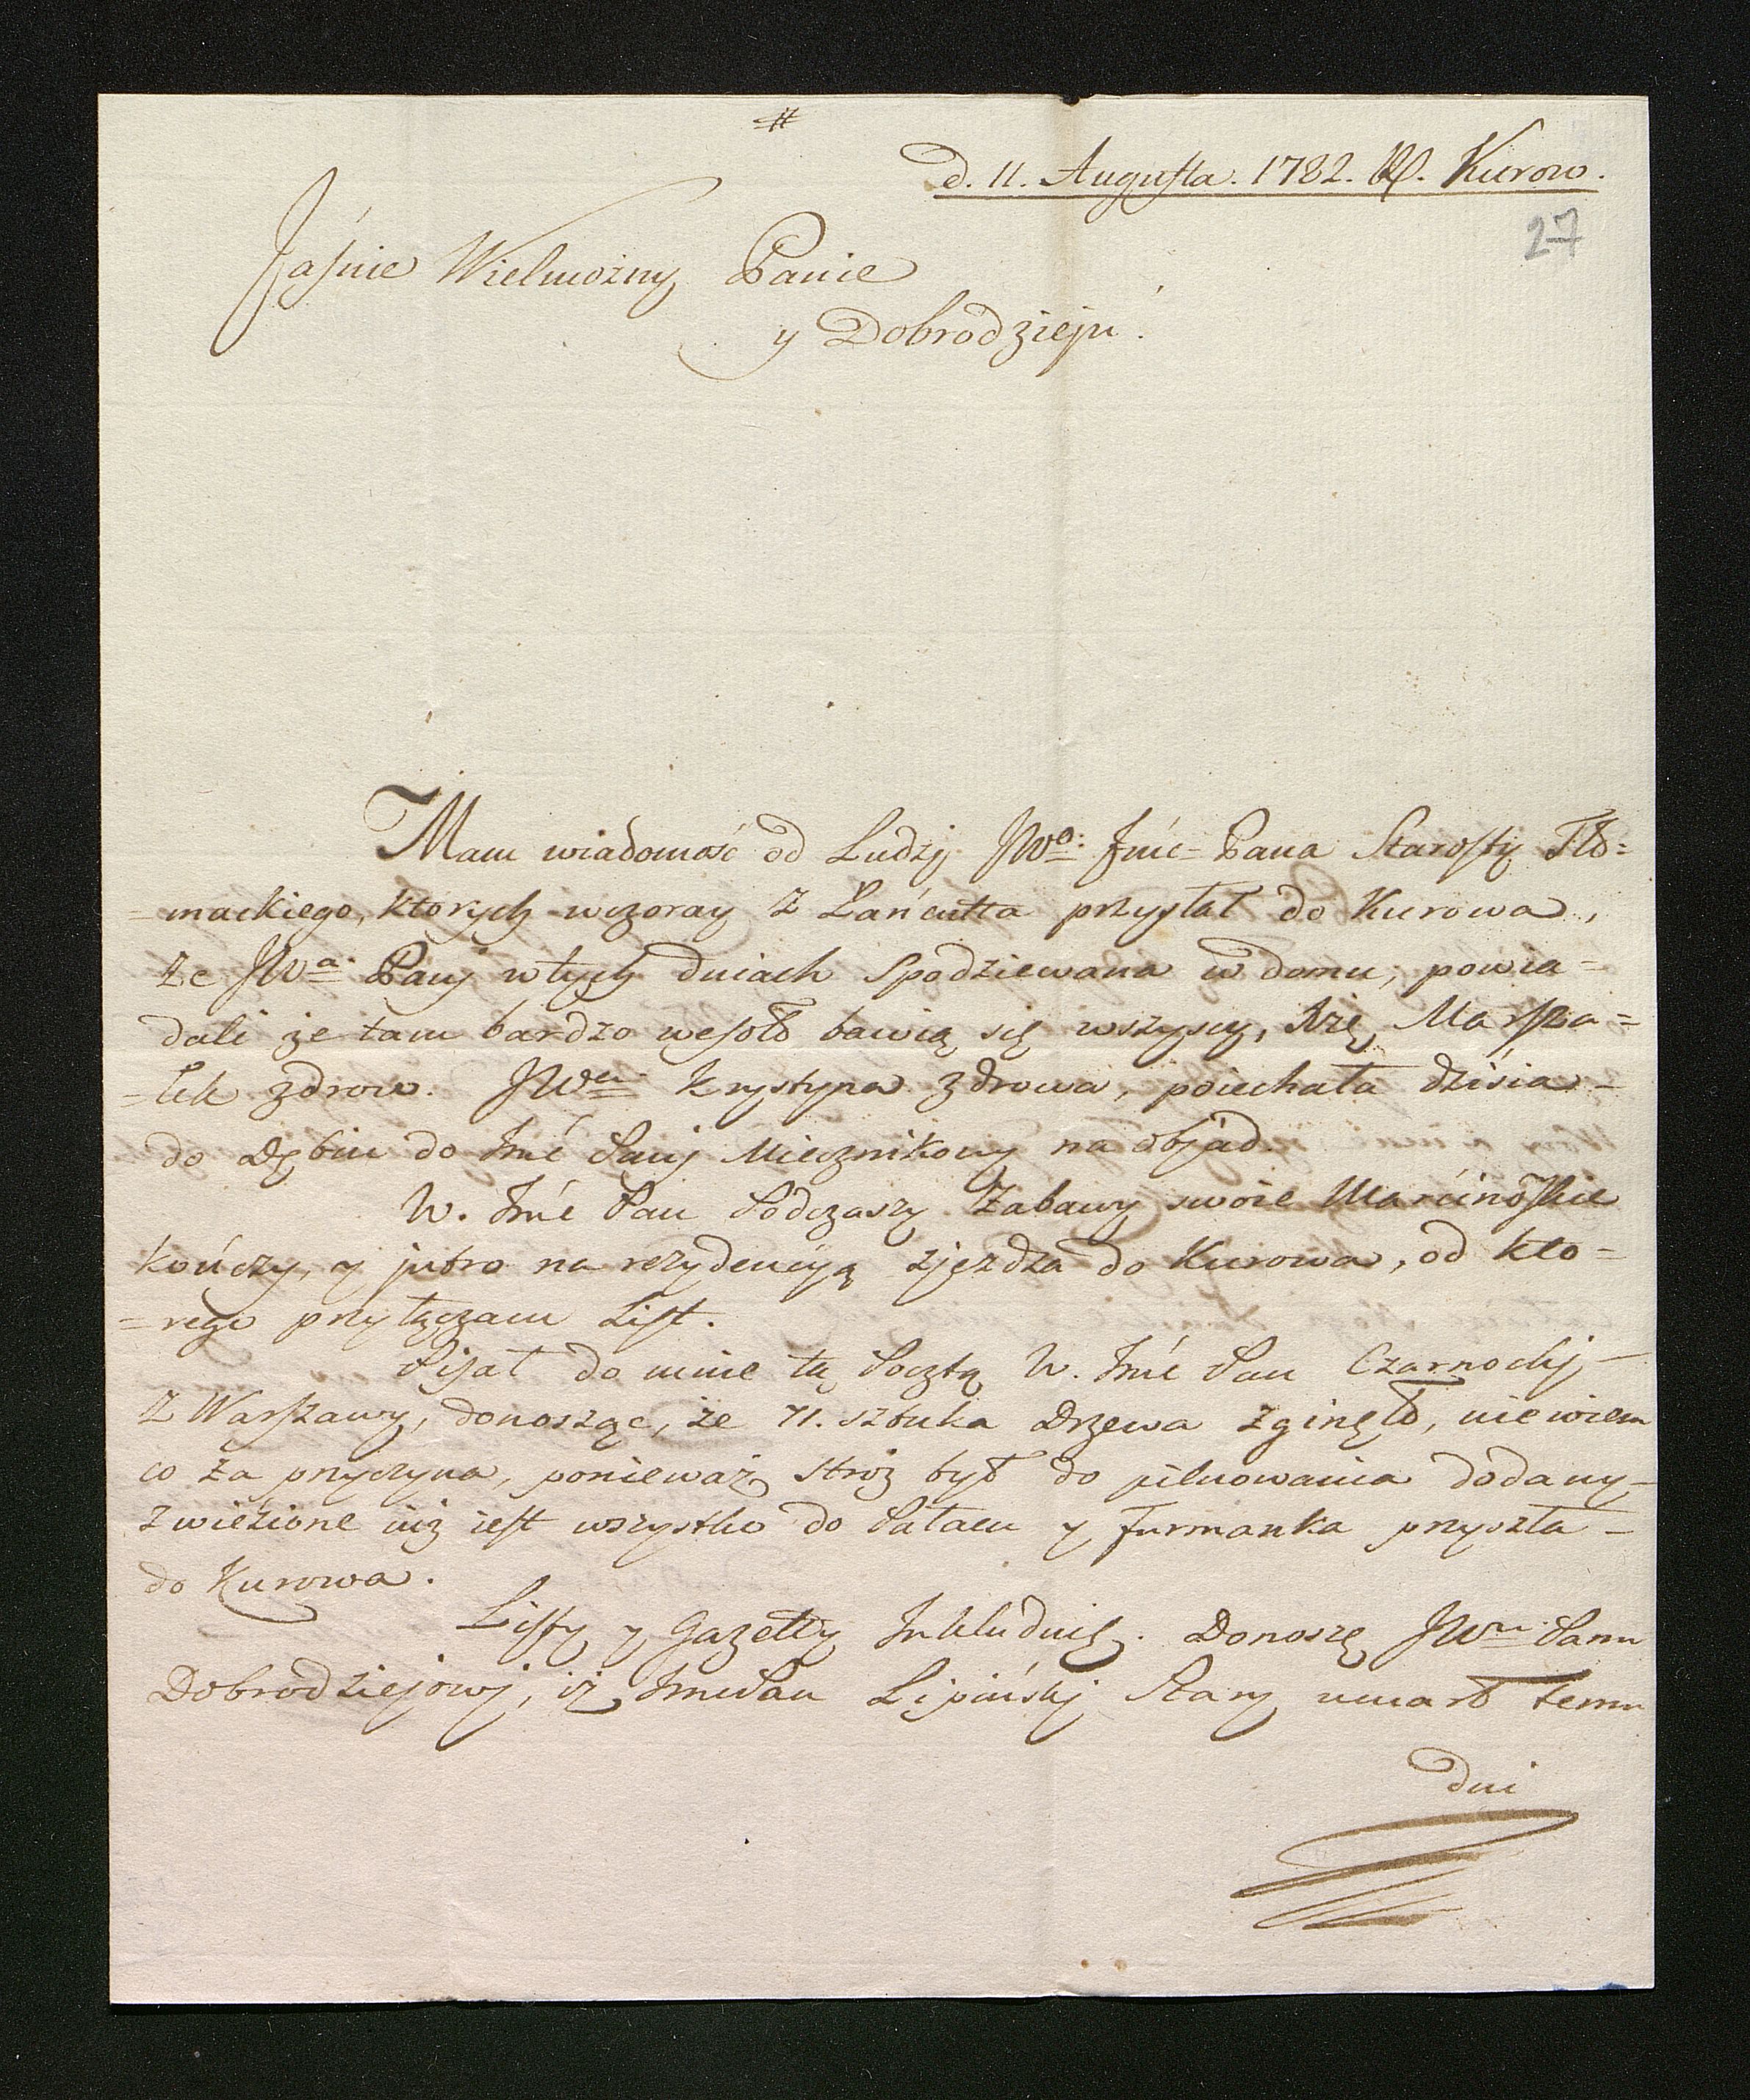 #
d. 11. Augusta. 1782. R. Kurow.
27
Jaśnie Wielmożny Panie
y Dobrodzieju.
Mam wiadomość od Ludzj JWo. Jmć Pana Starosty Tło=
=mackiego, ktorych wczoray z Łańcutta przysłał do Kurowa,
że JWa. Panj w tych dniach spodziewana w domu, powia=
dali że tam bardzo wesoło bawią się wszyscy, Xżę Marsza=
=łek zdrow. JWa Krystyna zdrowa, poiechała dzisia-
do Dębin do Jmć Panj Miecznikowy na objad.
W. Jmć Pan Podczaszy Zabawy swoie Marcinoskie
kończy, y jutro na rezydencyą zjeżdza do Kurowa, od kto=
=rego przyłączam List.
Pisał do mnie tą Pocztą W. Jmć Pan Czarnockj-
z Warszawy, donosząc, że 71. sztuka Drzewa zginęło, niewiem
co za przyczyna, ponieważ stroż był do pilnowania dodany-
zwieźione iuż iest wszystko do Pałacu y furmanka przyszła-
do Kurowa.
Listy y Gazetty Inkluduię. Donoszę JWmu Panu
Dobrodziejowj, iż JmcPan Lipińskj Stary umarł temu
dni